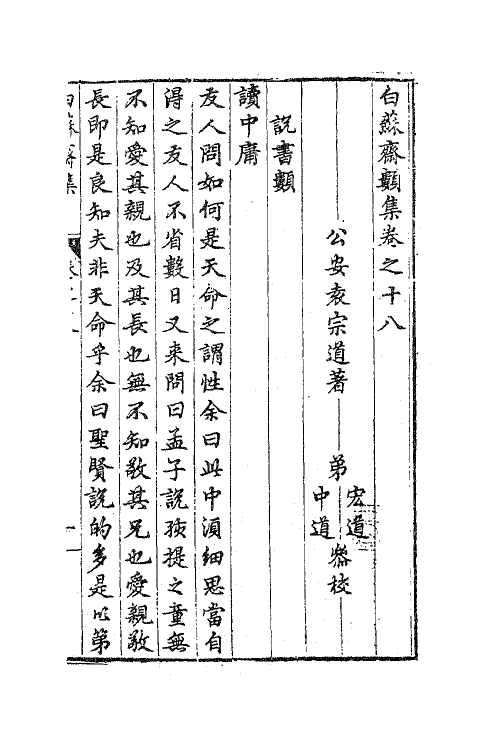 白蘇齋類集卷之十八
公安袁宗道著 弟 宏道 中道 叅校
說書類
讀中庸
友人問如何是天命之謂性余曰此中須細思當自
得之友人不省數日又來問曰孟子說孩提之童無
不知愛其親也及其長也無不知敬其兄也愛親敬
長即是良知夫非天命乎余曰聖賢說的多是以第
白蘇齋集 卷之十八 一